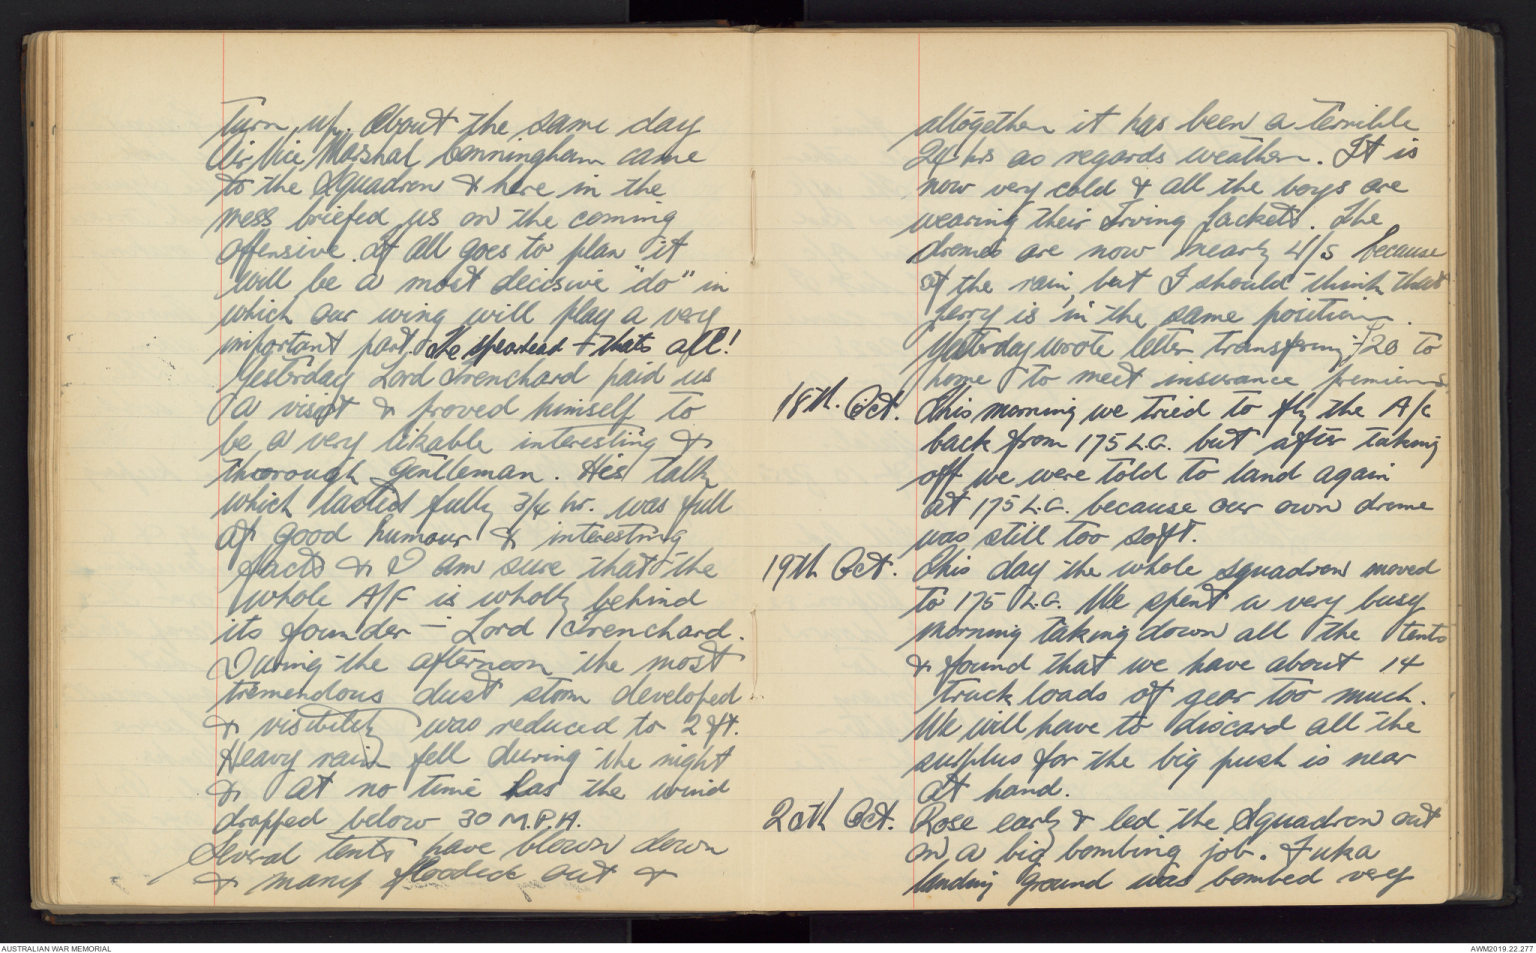 turn up. About the same day
Air Vice Marshal Conningham came
to the Squadron & here in the
mess briefed us on the coming
offensive. If all goes to plan it
will be a most decisive "do" in
which our wing will play a very
important part. The spearhead - thats all!
Yesterday Lord Trenchard paid us
a visit & proved himself to
be a very likable interesting &
thorough gentleman. His talk,
which lasted fully 3/4 hr. was full
of good humour & interesting
facts & I am sure that the
whole A/F is wholly behind
its founder - Lord Trenchard.
During the afternoon the most
tremendous dust storm developed
& visibility was reduced to 2 ft.
Heavy rain fell during the night
& at no time has the wind
dropped below 30 M.P.H.
Several tents have blown down
& many flooded out &
altogether it has been a terrible
24 hrs as regards weather. It is
now very cold & all the boys are
wearing their Irving Jackets. The
dromes are now nearly U/S because
of the rain, but I should think that
Jerry is in the same position.
Yesterday wrote letter transferring £20 to
home to meet insurance premiums.
18th. Oct. This morning we tried to fly the A/c
back from 175 L.G. but after taking
off we were told to land again
at 175 L.G. because our own drome
was still too soft.
19th Oct. This day the whole squadron moved
to 175 L.G. We spent a very busy
morning taking down all the tents
& found that we have about 14
truck loads of gear too much.
We will have to discard all the
sulplus for the big push is near
at hand.
20th Oct. Rose early & led the Squadron out
on a big bombing job. Fuka
landing ground was bombed very
AUSTRALIAN WAR MEMORIAL
AWM2019.22.277